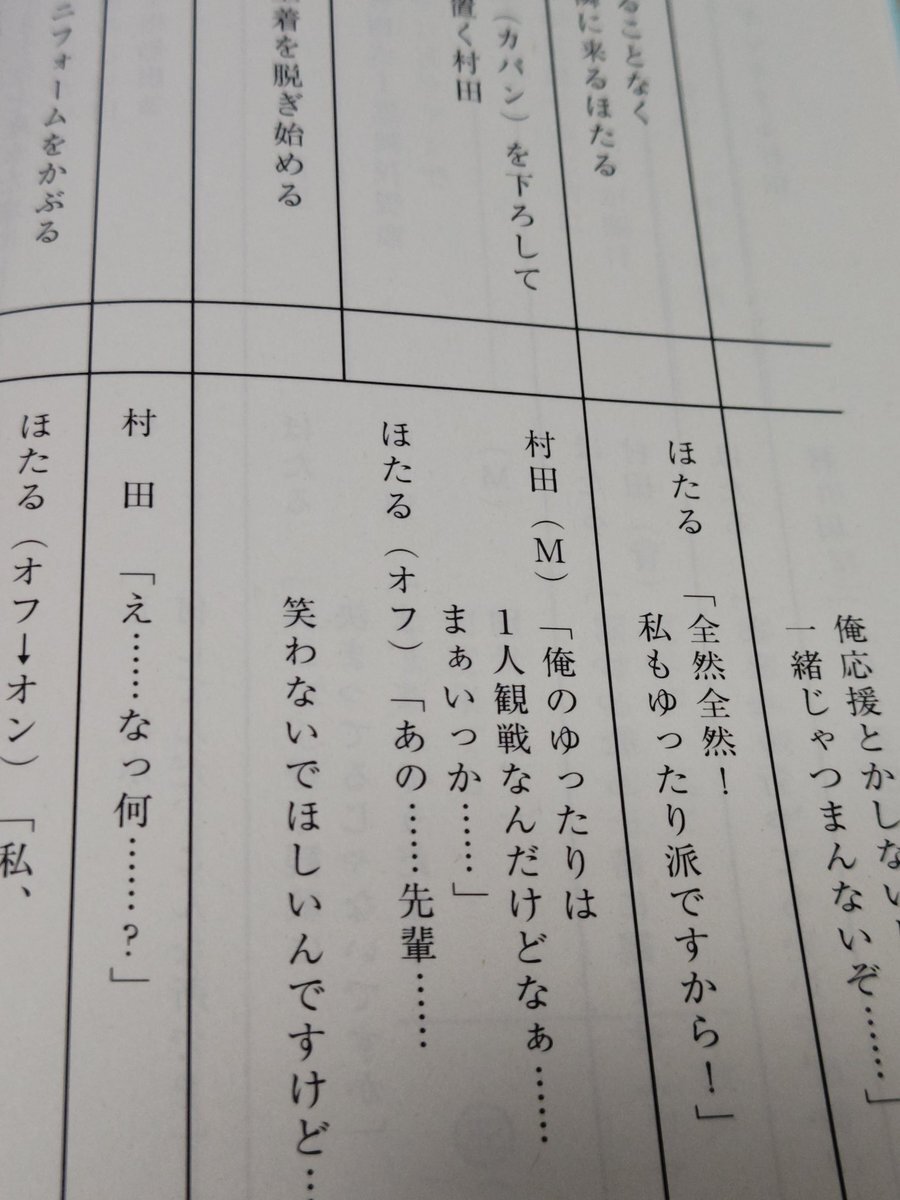 ることなく
に来るほたる
（カバン）を下ろして
置く村田
着を脱ぎ始める
ニフォームをかぶる
俺応援とかしないし
一緒じゃつまんないぞ……」
ほたる「全然全然！
私もゆったり派ですから！」
村田（M）「俺のゆったりは
1人観戦なんだけどなぁ……
まぁいっか……」
ほたる（オフ）「あの……先輩……
笑わないでほしいんですけど…
村田「え……なっ何……？」
ほたる（オフ→オン）「私、